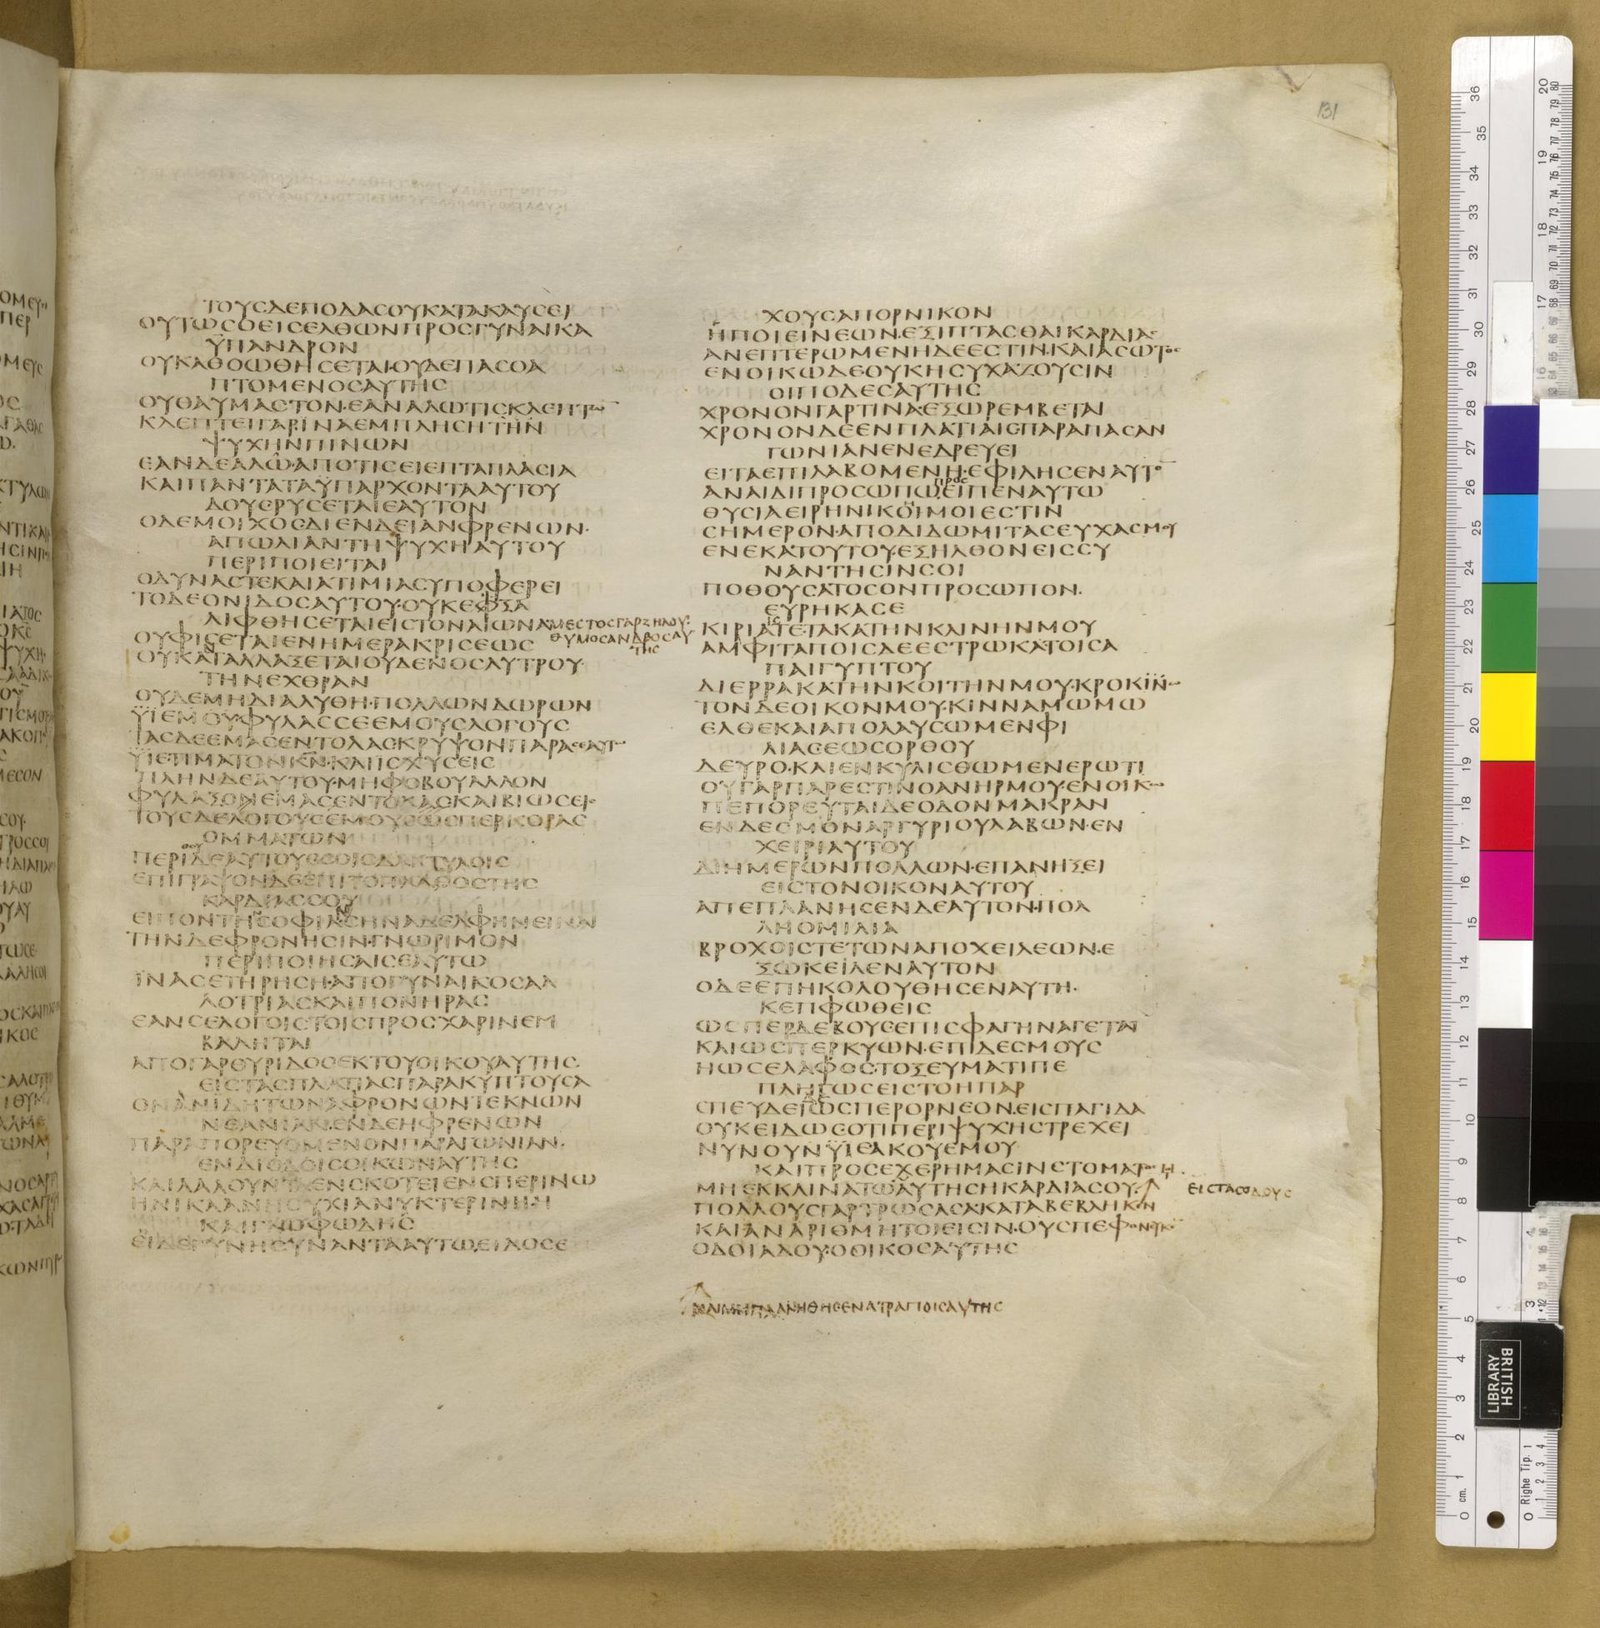 131
ΤΟΥΣΔΕΠΟΔΑΣΟΥΚΑΤΑΚΑΥΣΕΙ
ΟΥΤΩΣΟΕΙΣΕΛΘΩΝΠΡΟΣΓΥΝΑΙΚΑ
ΫΠΑΝΔΡΟΝ
ΟΥΚΑΘΟΩΘΗΣΕΤΑΙ·ΟΥΔΕΠΑΣΟΑ
ΠΤΟΜΕΝΟΣΑΥΤΗΣ
ΟΥΘΑΥΜΑΣΤΟΝ·ΕΑΝΑΛΩΤΙΣΚΛΕΠΤΩ̅
ΚΛΕΠΤΕΙΓΑΡΙΝΑΕΜΠΛΗΣΗΤΗΝ
ΨΥΧΗΝΠΙΝΩΝ
ΕΑΝΔΕΑΛΩ·ΑΠΟΤΙΣΕΙΕΠΤΑΠΛΑΣΙΑ
ΚΑΙΠΑΝΤΑΤΑΫΠΑΡΧΟΝΤΑΑΥΤΟΥ
ΔΟΥΣΡΥΣΕΤΑΙΕΑΥΤΟΝ
ΟΔΕΜΟΙΧΟΣΔΙΕΝΔΕΙΑΝΦΡΕΝΩΝ·
ΑΠΩΛΙΑΝΤΗΨΥΧΗΑΥΤΟΥ
ΠΕΡΙΠΟΙΕΙΤΑΙ
ΟΔΥΝΑΣΤΕΚΑΙΑΤΙΜΙΑΣΥΠΟΦΕΡΕΙ
ΤΟΔΕΟΝΙΔΟΣΑΥΤΟΥ·ΟΥΚΕΞΑ
ΛΙΦΘΗΣΕΤΑΙΕΙΣΤΟΝΑΙΩΝΑ
ΜΕΣΤΟΣΓΑΡΖΗΛΟΥ
ΘΥΜΟΣΑΝΔΡΟΣΑΥ
ΤΗΣ
ΟΥΦΙΣΕΤΑΙΕΝΗΜΕΡΑΚΡΙΣΕΩΣ
ΟΥΚΑΤΑΛΛΑΞΕΤΑΙΟΥΔΕΝΟΣΛΥΤΡΟΥ·
ΤΗΝΕΧΘΡΑΝ
ΟΥΔΕΜΗΔΙΑΛΥΘΗ·ΠΟΛΛΩΝΔΩΡΩΝ
ΫΙΕΜΟΥ·ΦΥΛΑΣΣΕΕΜΟΥΣΛΟΓΟΥΣ
ΤΑΣΔΕΕΜΑΣΕΝΤΟΛΑΣΚΡΥΨΟΝΠΑΡΑΣΕΑΥΤ
ΫΙΕΤΙΜΑΤΟΝΚ̅Ν̅·ΚΑΙΙΣΧΥΣΕΙΣ
ΠΛΗΝΔΕΑΥΤΟΥ·ΜΗΦΟΒΟΥΑΛΛΟΝ
ΦΥΛΑΞΟΝΕΜΑΣΕΝΤΟΛΑΣΚΑΙΒΙΩΣΕΙ·
ΤΟΥΣΔΕΛΟΓΟΥΣΕΜΟΥΣΩΣΠΕΡΚΟΡΑΣ
ΟΜΜΑΤΩΝ
ΠΕΡΙΔΕΑΥΤΟΥΣΣΟΙΣΔΑΚΤΥΛΟΙΣ
ΕΠΙΓΡΑΨΟΝΔΕΕΠΙΤΟΠΛΑΤΟΣΤΗΣ
ΚΑΡΔΙΑΣΣΟΥ
ΕΙΠΟΝΤΗΣΟΦΙΑΣΗΝΑΔΕΛΦΗΝΕΙΝΑΙ
ΤΗΝΔΕΦΡΟΝΗΣΙΝΓΝΩΡΙΜΟΝ
ΠΕΡΙΠΟΙΗΣΑΙΣΕΑΥΤΩ
ΙΝΑΣΕΤΗΡΗΣΗ·ΑΠΟΓΥΝΑΙΚΟΣΑΛ
ΛΟΤΡΙΑΣΚΑΙΠΟΝΗΡΑΣ
ΕΑΝΣΕΛΟΓΟΙΣΤΟΙΣΠΡΟΣΧΑΡΙΝΕΜ
ΒΑΛΗΤΑΙ
ΑΠΟΓΑΡΘΥΡΙΔΟΣΕΚΤΟΥΟΙΚΟΥΑΥΤΗΣ
ΕΙΣΤΑΣΠΛΑΤΙΑΣΠΑΡΑΚΥΠΤΟΥΣΑ
ΟΝΑΝΙΔΗΤΩΝΑΦΡΟΝΩΝΤΕΚΝΩΝ
ΝΕΑΝΙΑΝΕΝΔΕΗΦΡΕΝΩΝ
ΠΑΡΑΠΟΡΕΥΟΜΕΝΟΝΠΑΡΑΓΩΝΙΑΝ·
ΕΝΔΙΟΔΟΙΣΟΙΚΩΝΑΥΤΗΣ
ΚΑΙΛΑΛΟΥΝΤΑΕΝΣΚΟΤΕΙΕΝΣΠΕΡΙΝΩ
ΗΝΙΚΑΑΝΗΣΥΧΙΑΝΥΚΤΕΡΙΝΗΗ
ΚΑΙΓΝΟΦΩΔΗΣ
ΕΙΔΕΓΥΝΗΣΥΝΑΝΤΑΑΥΤΩ·ΕΙΔΟΣΕ
ΧΟΥΣΑΠΟΡΝΙΚΟΝ
ΗΠΟΙΕΙΝΕΩΝ·ΕΞΙΠΤΑΣΘΑΙΚΑΡΔΙΑΣ
ΑΝΕΠΤΕΡΩΜΕΝΗΔΕΕΣΤΙΝ·ΚΑΙΑΣΩΤΟΣ
ΕΝΟΙΚΩΔΕΟΥΚΗΣΥΧΑΖΟΥΣΙΝ
ΟΙΠΟΔΕΣΑΥΤΗΣ
ΧΡΟΝΟΝΓΑΡΤΙΝΑ·ΕΞΩΡΕΜΒΕΤΑΙ
ΧΡΟΝΟΝΔΕΕΝΠΛΑΤΙΑΙΣΠΑΡΑΠΑΣΑΝ
ΓΩΝΙΑΝΕΝΕΔΡΕΥΕΙ
ΕΙΤΑΕΠΙΛΑΒΟΜΕΝΗ·ΕΦΙΛΗΣΕΝΑΥΤΟ
ΑΝΑΙΔΙΠΡΟΣΩΠΩ·ΠΡΟΣΕΙΠΕΝΑΥΤΩ
ΘΥΣΙΑΕΙΡΗΝΙΚΟΪΜΟΙΕΣΤΙΝ
ΣΗΜΕΡΟΝ·ΑΠΟΔΙΔΩΜΙΤΑΣΕΥΧΑΣΜΟΥ
ΕΝΕΚΑΤΟΥΤΟΥ·ΕΞΗΛΘΟΝΕΙΣΣΥ
ΝΑΝΤΗΣΙΝΣΟΙ
ΠΟΘΟΥΣΑΤΟΣΟΝΠΡΟΣΩΠΟΝ·
ΕΥΡΗΚΑΣΕ
ΚΙΡΙΑΤΕΤΑΚΑΤΗΝΚΛΙΝΗΝΜΟΥ
ΑΜΦΙΤΑΠΟΙΣΔΕΕΣΤΡΩΚΑΤΟΙΣΑ
ΠΑΙΓΥΠΤΟΥ
ΔΙΕΡΡΑΚΑΤΗΝΚΟΙΤΗΝΜΟΥ·ΚΡΟΚΙΝΩ
ΤΟΝΔΕΟΙΚΟΝΜΟΥ·ΚΙΝΝΑΜΩΜΩ
ΕΛΘΕΚΑΙΑΠΟΛΑΥΣΩΜΕΝΦΙ
ΛΙΑΣΕΩΣΟΡΘΟΥ
ΔΕΥΡΟ·ΚΑΙΕΝΚΥΛΙΣΘΩΜΕΝΕΡΩΤΙ
ΟΥΓΑΡΠΑΡΕΣΤΙΝΟΑΝΗΡΜΟΥ·ΕΝΟΙΚΩ
ΠΕΠΟΡΕΥΤΑΙΔΕΟΔΟΝΜΑΚΡΑΝ
ΕΝΔΕΣΜΟΝΑΡΓΥΡΙΟΥΛΑΒΩΝ·ΕΝ
ΧΕΙΡΙΑΥΤΟΥ
ΔΙΗΜΕΡΩΝΠΟΛΛΩΝ·ΕΠΑΝΗΞΕΙ
ΕΙΣΤΟΝΟΙΚΟΝΑΥΤΟΥ
ΑΠΕΠΛΑΝΗΣΕΝΔΕΑΥΤΟΝ·ΠΟΛ
ΛΗΟΜΙΛΙΑ
ΒΡΟΧΟΙΣΤΕΤΩΝΑΠΟΧΕΙΛΕΩΝ·Ε
ΞΩΚΕΙΛΕΝΑΥΤΟΝ
ΟΔΕΕΠΗΚΟΛΟΥΘΗΣΕΝΑΥΤΗ·
ΚΕΠΦΩΘΕΙΣ
ΩΣΠΕΡΔΕΒΟΥΣΕΠΙΣΦΑΓΗΝΑΓΕΤΑΙ
ΚΑΙΩΣΠΕΡΚΥΩΝ·ΕΠΙΔΕΣΜΟΥΣ
ΗΩΣΕΛΑΦΟΣ·ΤΟΞΕΥΜΑΤΙΠΕ
ΠΛΗΓΩΣΕΙΣΤΟΗΠΑΡ
ΣΠΕΥΔΕΙΩΣΠΕΡΟΡΝΕΟΝ·ΕΙΣΠΑΓΙΔΑ
ΟΥΚΕΙΔΩΣΟΤΙΠΕΡΙΨΥΧΗΣΤΡΕΧΕΙ
ΝΥΝΟΥΝΫΙΕΑΚΟΥΕΜΟΥ
ΚΑΙΠΡΟΣΕΧΕΡΗΜΑΣΙΝΣΤΟΜΑΤ
ΜΗΕΚΚΛΙΝΑΤΩΑΥΤΗΣΗΚΑΡΔΙΑΣΟΥ
ΕΙΣΤΑΣΟΔΟΥΣ
ΠΟΛΛΟΥΣΓΑΡΤΡΩΣΑΣΑΚΑΤΑΒΕΒΛΗΚΕΝ
ΚΑΙΑΝΑΡΙΘΜΗΤΟΙΕΙΣΙΝ·ΟΥΣΠΕΦΟΝΕΥΚΕ
ΟΔΟΙΑΔΟΥ·ΟΟΙΚΟΣΑΥΤΗΣ
ΚΑΙΜΗΠΛΑΝΗΘΗΣΕΝΑΤΡΑΠΟΙΣΑΥΤΗΣ
BRITISH
LIBRARY